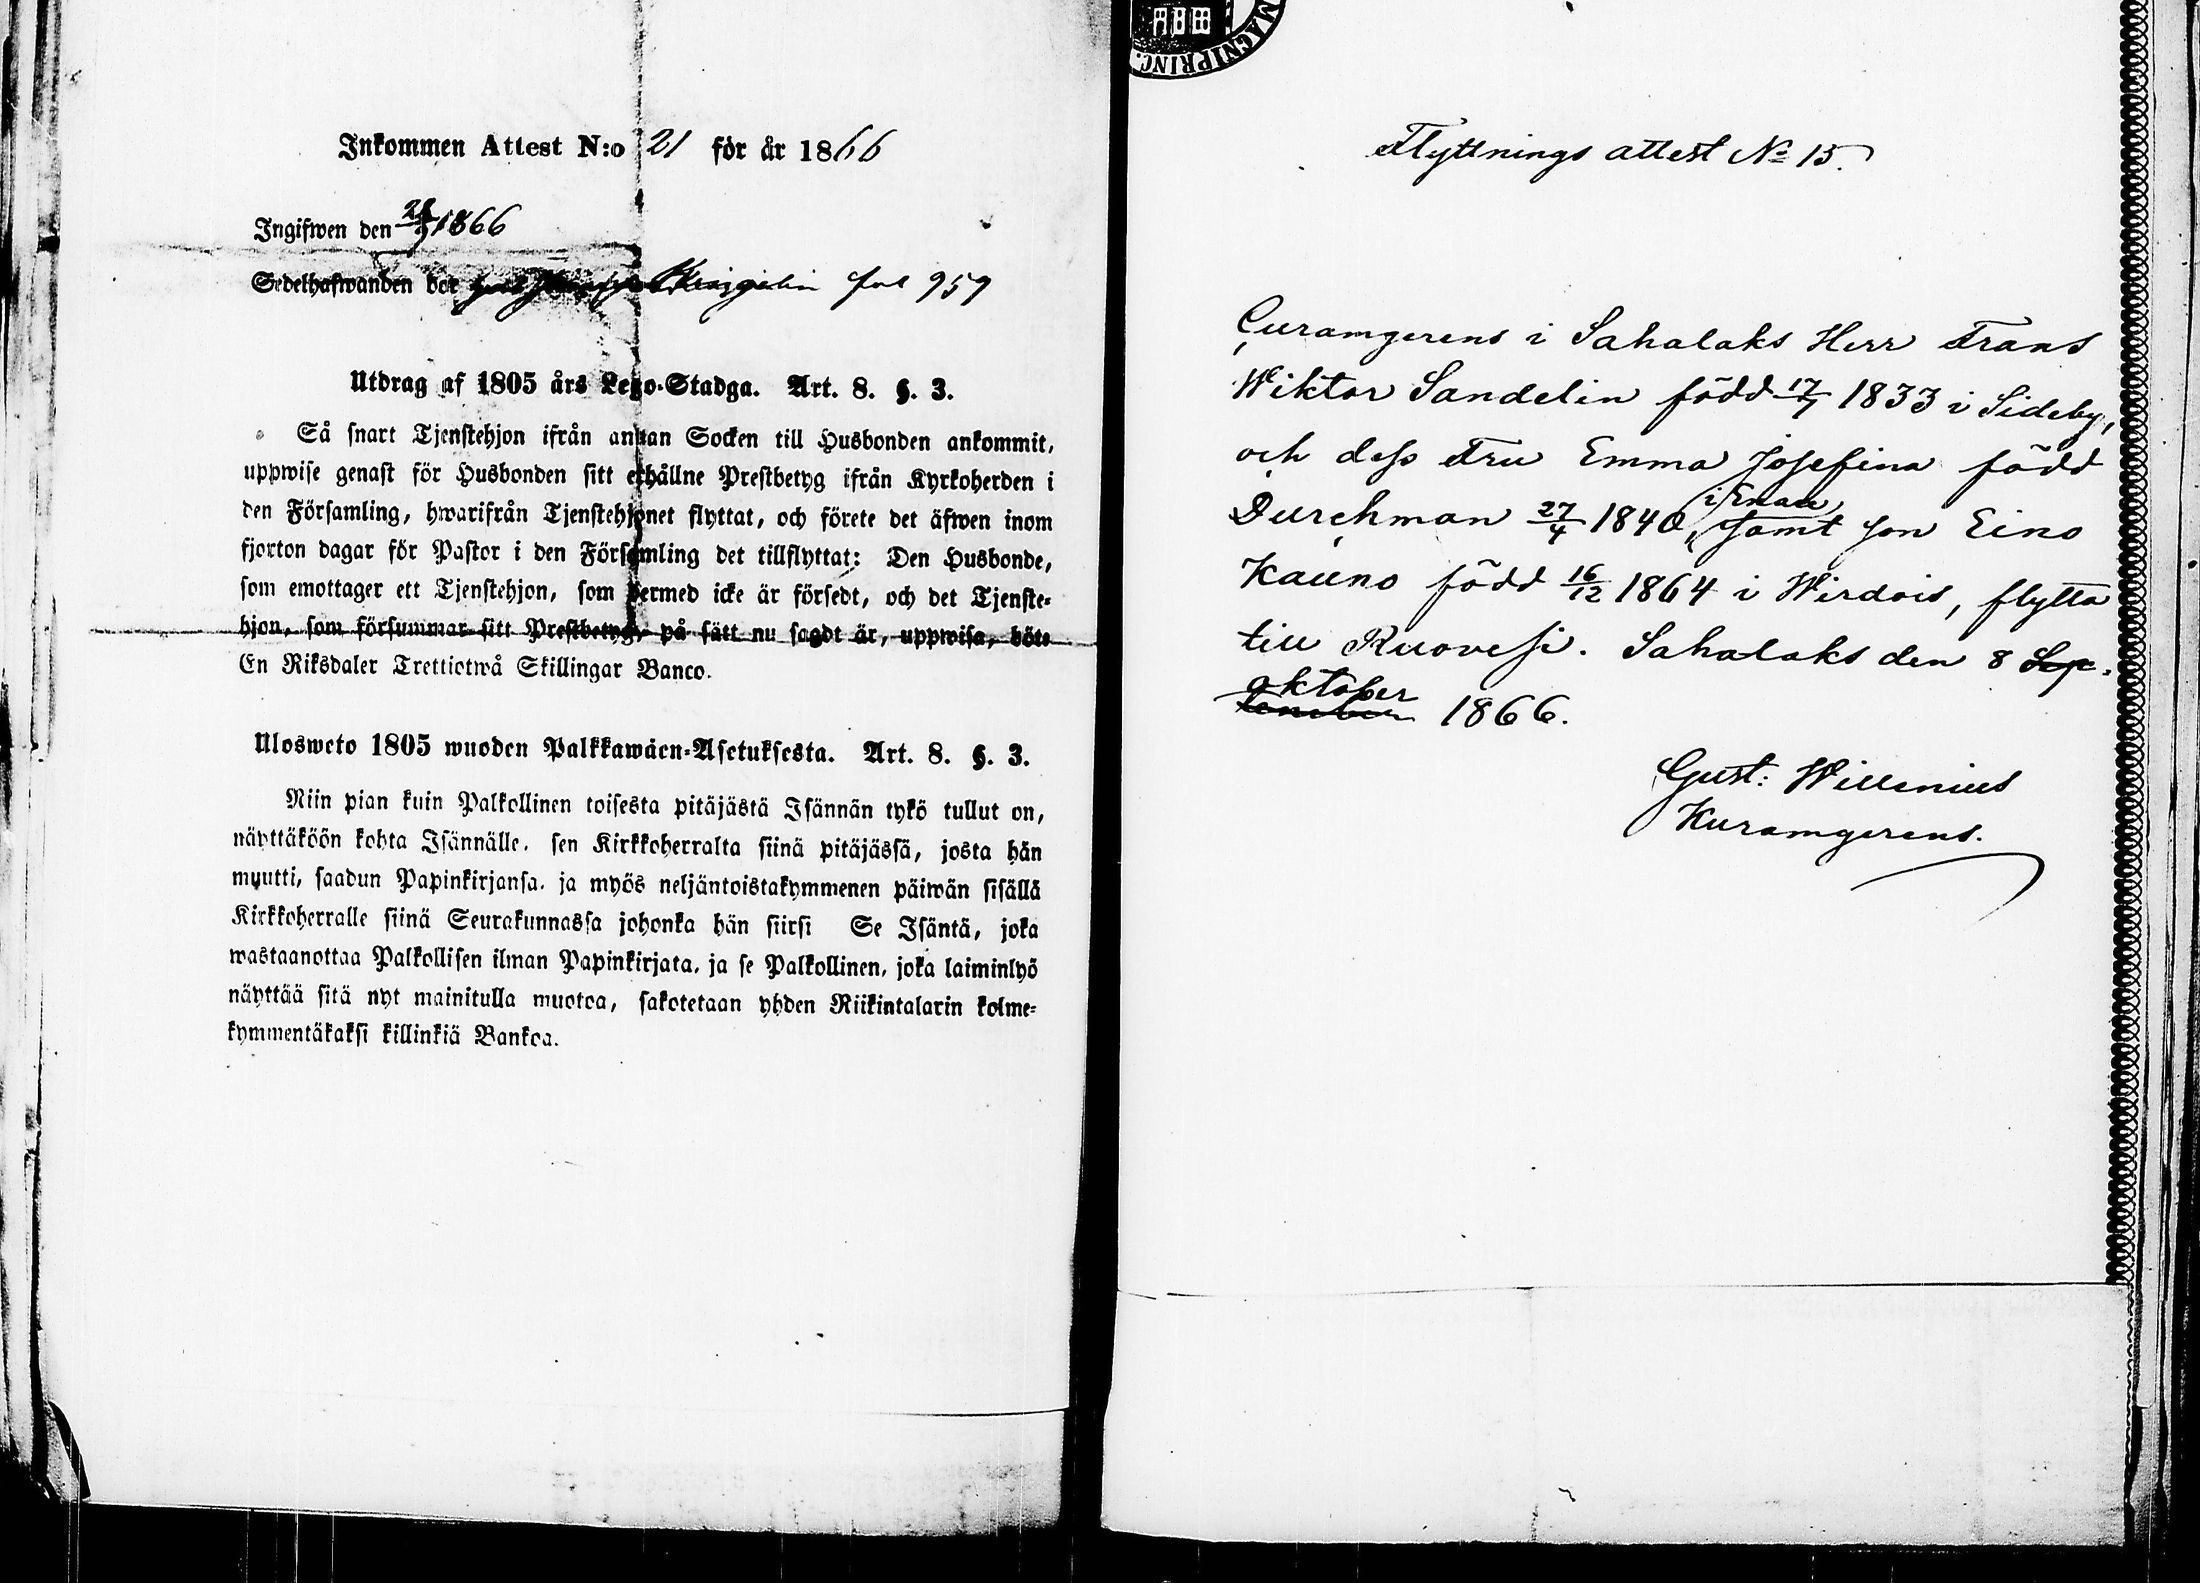 Inkommen Attest N:o 21 för år 1866
Ingifwen den 1866
Sedelhafwanden bor fol 959
Utdrag af 1805 års Lego-Stadga. Art. 8. §. 3.
Så snart Tjenstehjon ifrån annan Socken till Husbonden ankommit,
uppwise genast för Husbonden sitt erhållne Prestbetyg ifrån Kyrkoherden i
den Församling, hwarifrån Tjenstehjonet flyttat, och förete det äfwen inom
fjorton dagar för Pastor i den Församling det tillflyttat: Den Husbonde,
som emottager ett Tjenstehjon, som dermed icke är försedt, och det Tjenste-
hjon, som försummar sitt Prestbetyg, på sätt nu sagdt är, uppwisa, böte
En Riksdaler Trettiotwå Skillingar Banco.
Ulosweto 1805 wuoden Palkkawäen-Asetuksesta. Art. 8. §. 3.
Niin pian kuin Palkollinen toisesta pitäjästä Isännän tykö tullut on,
näyttäköön kohta Isännälle, sen Kirkkoherralta siinä pitäjässä, josta hän
muutti, saadun Papinkirjansa, ja myös neljäntoistakymmenen päiwän sisällä
Kirkkoherralle siinä Seurakunnassa johonka hän siirsi Se Isäntä, joka
wastaanottaa Palkollisen ilman Papinkirjata, ja se Palkollinen, joka laiminlyö
näyttää sitä nyt mainitulla muotoa, sakotetaan yhden Riikintalarin kolme-
kymmentäkaksi killinkiä Bankoa.
MAGNI PRINC.
Flyttnings attest No 15.
Curamgerens i Sahalaks Herr Frans
Wiktor Sandelin född 17/7 1833 i Sideby,
och dess Fru Emma Josefina född
Durchman 27/4 1840, i Enare samt son Eino
Kauno född 16/12 1864 i Wirdois, flytta
till Ruovesi. Sahalaks den 8 Sep-
oktober
tember 1866.
Gust: Willenius
Kuramgerens.